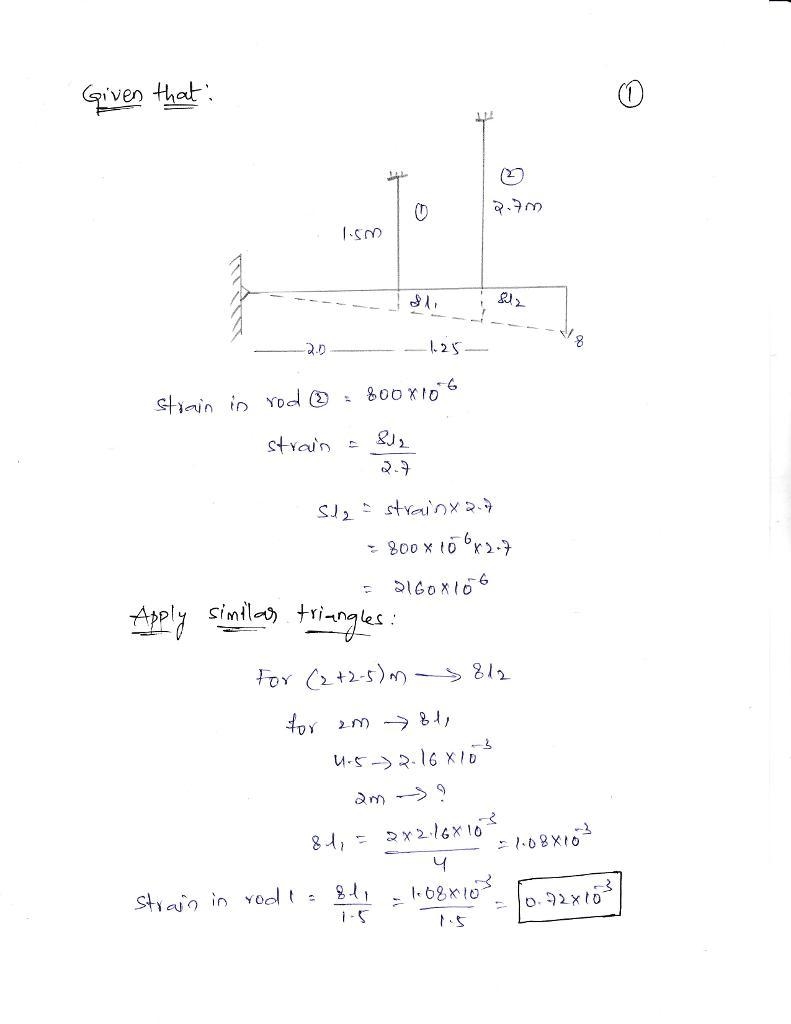 Given that:
①
②
2.7m
①
1.5m
δl₁
δl₂
8
2.0
1.25
strain in rod ② = 800×10⁻⁶
strain = δl₂/2.7
δl₂ = strain×2.7
= 800×10⁻⁶×2.7
= 2160×10⁻⁶
Apply similar triangles:
For (2+2.5)m → δl₂
for 2m → δl₁
4.5 → 2.16×10⁻³
2m → ?
δl₁ = 2×2.16×10⁻³/4 = 1.08×10⁻³
strain in rod 1 = δl₁/1.5 = 1.08×10⁻³/1.5 = 0.72×10⁻³